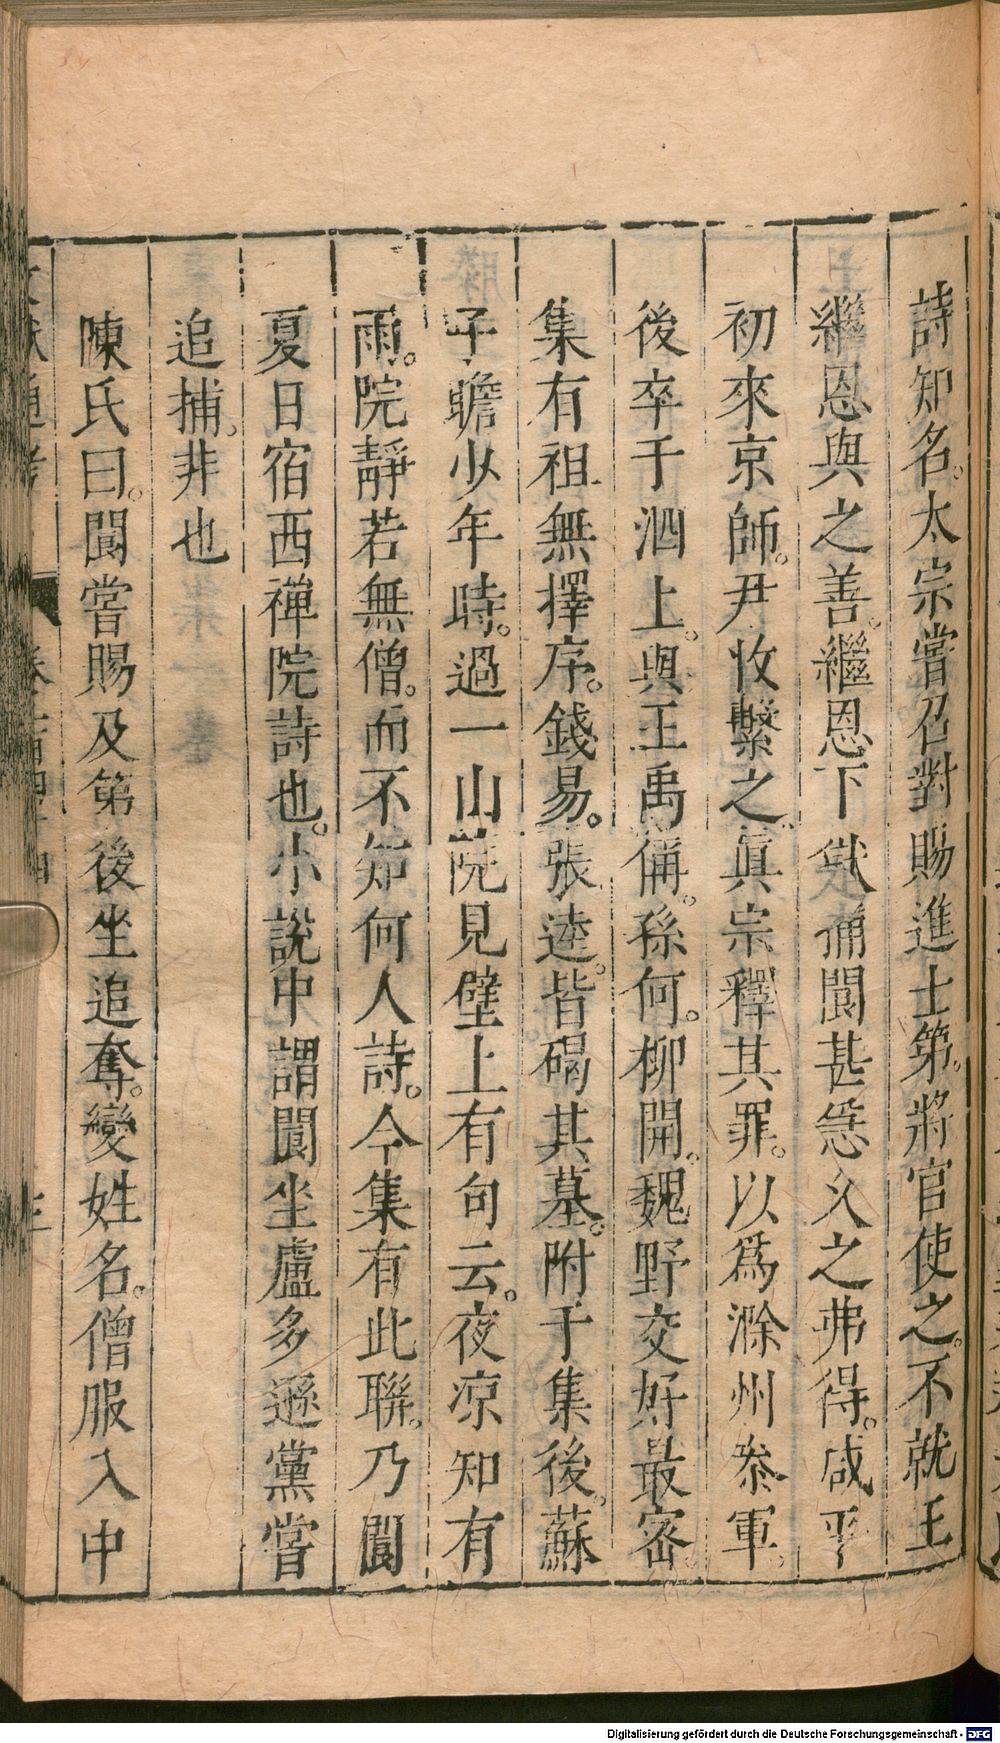 詩知名。太宗嘗召對賜進士第。將官使之。不就王
繼恩與之善。繼恩下獄捕閬甚急久之弗得。咸平
初來京師。尹收繫之。眞宗釋其罪。以爲滁州叅軍。
後卒于泗上。與王禹偁。孫何。柳開。魏野交好最密。
集有祖無擇序。錢易。張逵。皆碣其墓。附于集後。蘇
子瞻少年時。過一山院見壁上有句云。夜凉知有
雨。院靜若無僧。而不知何人詩。今集有此聯。乃閬
夏日宿西禪院詩也。小說中謂閬坐盧多遜黨嘗
追捕。非也
陳氏曰。閬嘗賜及第後坐追奪。變姓名。僧服入中
Digitalisierung gefördert durch die Deutsche Forschungsgemeinschaft - DFG